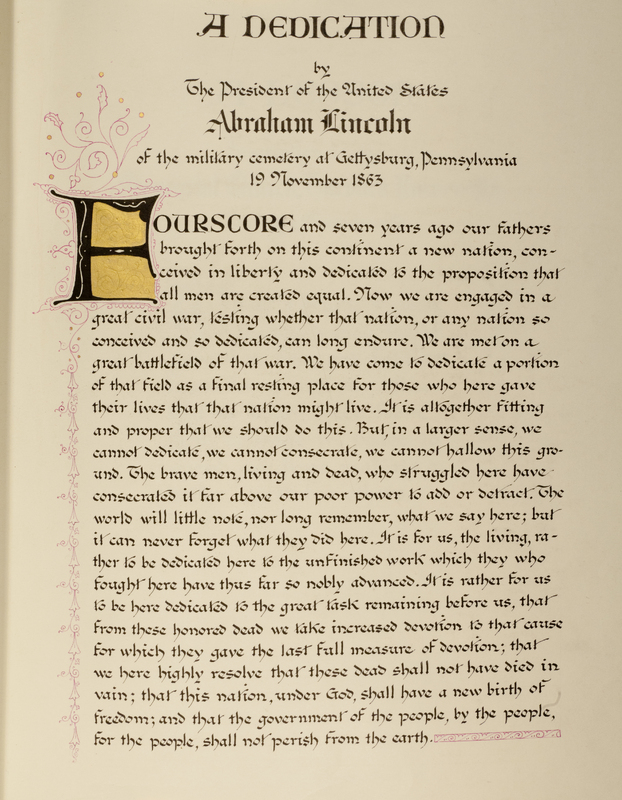 A DEDICATION
by
The President of the United States
Abraham Lincoln
of the military cemetery at Gettysburg, Pennsylvania
19 November 1863
FOURSCORE and seven years ago our fathers
brought forth on this continent a new nation, con-
ceived in liberty and dedicated to the proposition that
all men are created equal. Now we are engaged in a
great civil war, testing whether that nation, or any nation so
conceived and so dedicated, can long endure. We are met on a
great battlefield of that war. We have come to dedicate a portion
of that field as a final resting place for those who here gave
their lives that that nation might live. It is altogether fitting
and proper that we should do this. But, in a larger sense, we
cannot dedicate, we cannot consecrate, we cannot hallow this gro-
und. The brave men, living and dead, who struggled here have
consecrated it far above our poor power to add or detract. The
world will little note, nor long remember, what we say here; but
it can never forget what they did here. It is for us, the living, ra-
ther to be dedicated here to the unfinished work which they who
fought here have thus far so nobly advanced. It is rather for us
to be here dedicated to the great task remaining before us, that
from these honored dead we take increased devotion to that cause
for which they gave the last full measure of devotion; that
we here highly resolve that these dead shall not have died in
vain; that this nation, under God, shall have a new birth of
freedom; and that the government of the people, by the people,
for the people, shall not perish from the earth.